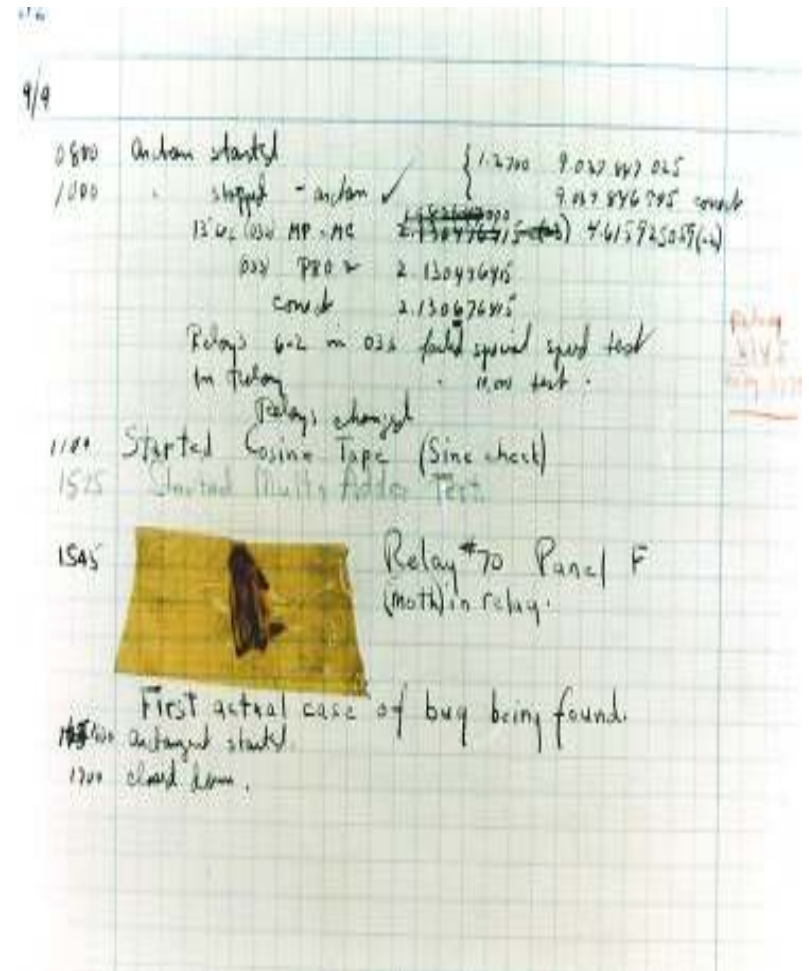 9/9
0800 antan started { 1.2700 9.037 847 025
1000 " stopped - antan ✓ 9.037 846 795 correct
13"UC (032) MP - MC 2.130476415 (-3) 4.615925059(-2)
033 PRO 2 2.130476415
correct 2.130676415
Relays 6-2 in 033 failed special speed test
in Relay " 10,000 test .
Relays changed
1100 Started Cosine Tape (Sine check)
1525 Started Multi Adder Test.
1545 Relay #70 Panel F
(moth) in relay.
First actual case of bug being found.
1600 antangent started.
1700 closed down.
Relay